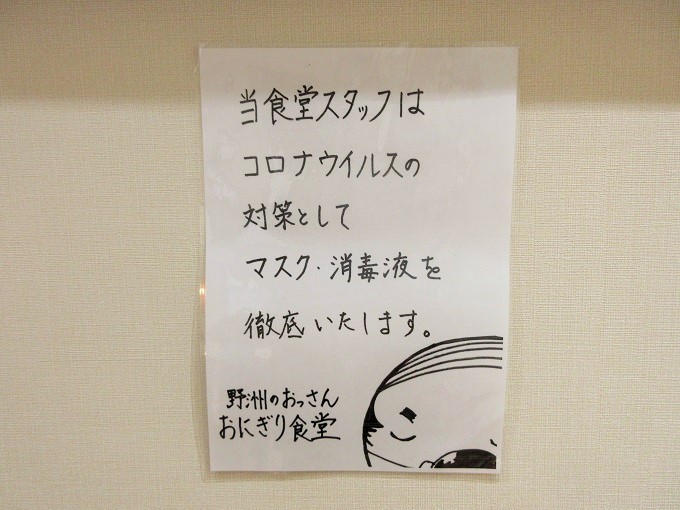 当食堂スタッフは
コロナウイルスの
対策として
マスク・消毒液を
徹底いたします。
野洲のおっさん
おにぎり食堂